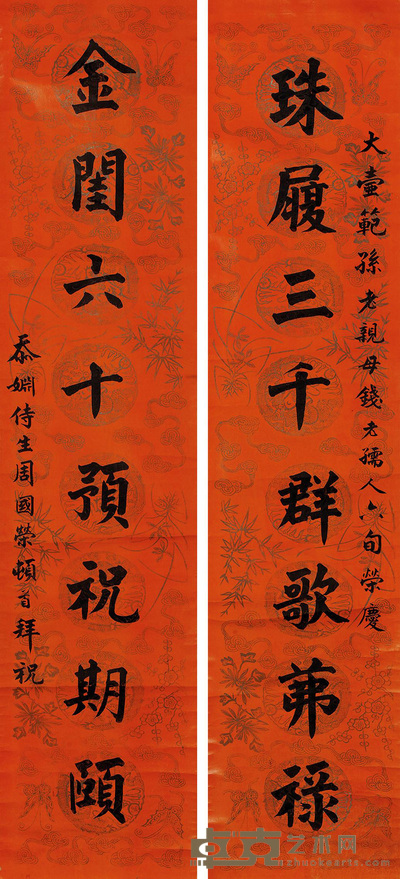 大壼範孫老親母錢老孺人六旬榮慶
珠履三千群歌茀祿
金閨六十預祝期頤
忝婣侍生周國榮頓首拜祝
卓克艺术网
zhuokearts.com